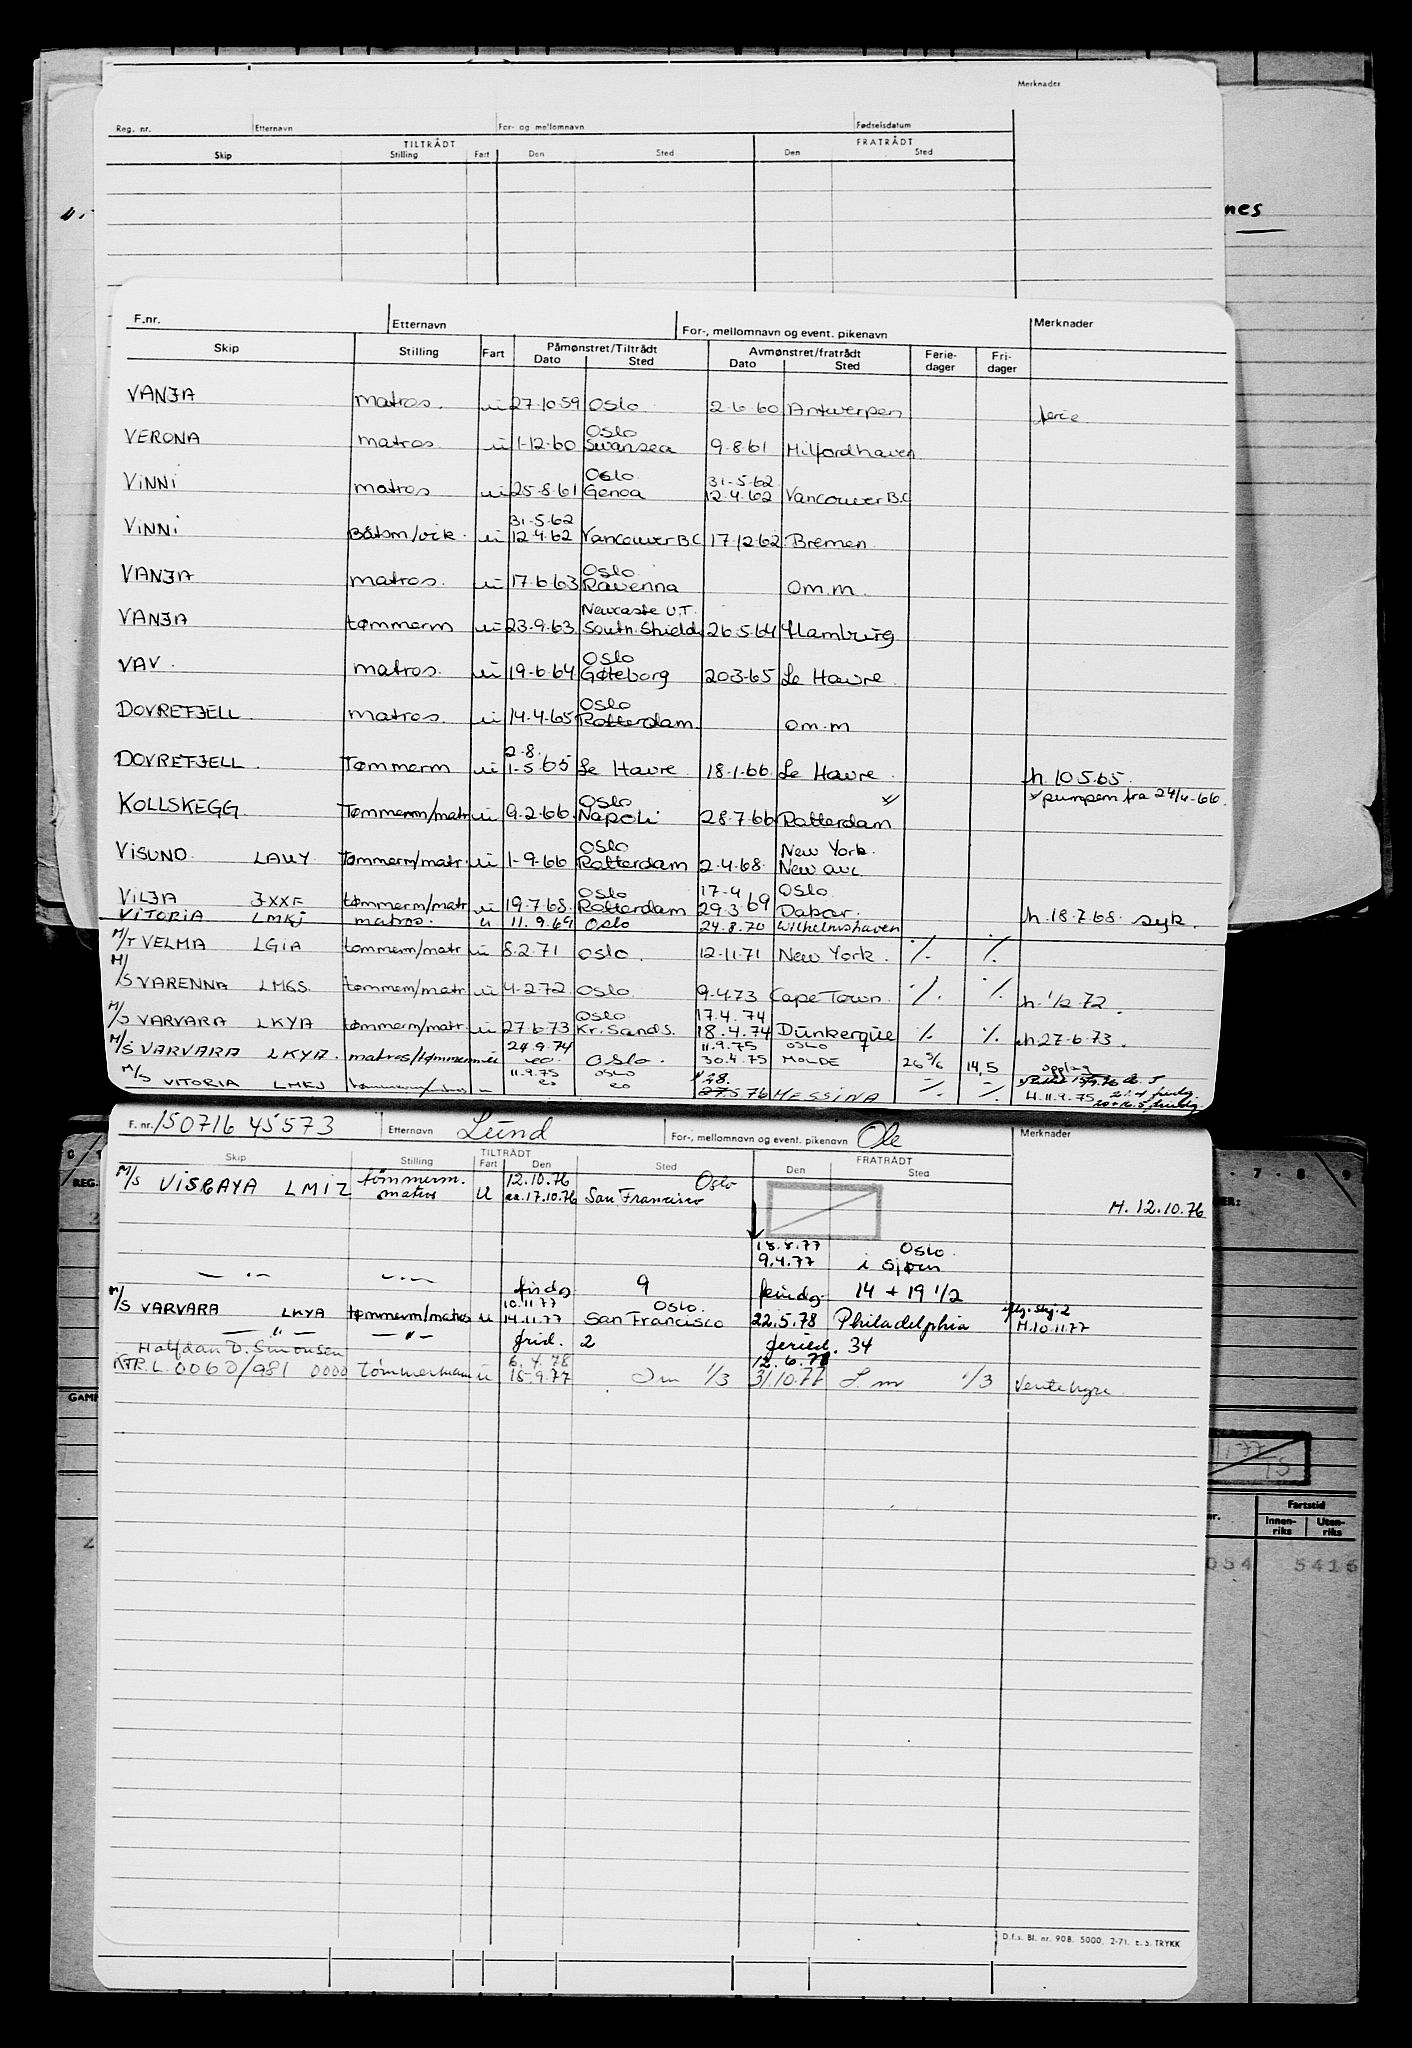 Merknader
Reg. nr. Etternavn For- og mellomnavn Fødselsdatum
TILTRÅDT FRATRÅDT
Skip Stilling Fart Den Sted Den Sted
nes
F.nr. Etternavn For-, mellomnavn og event. pikenavn Merknader
Skip Stilling Fart Påmønstret/Tiltrådt Avmønstret/fratrådt Ferie- Fri-
Dato Sted Dato Sted dager dager
VANJA matros. u 27.10.59 Oslo 2.6.60 Antwerpen ferie
Oslo
VERONA matros u 1-12-60 Swansea 9.8.61 Milfordhaven
Oslo 31-5-62
VINNI matros u 25-8.61 Genoa 12.4.62 Vancouver B.C
31-5.62
VINNI Båtsm/vik. u 12.4.62 Vancouver B.C 17.12.62 Bremen
Oslo
VANJA matros. u 17.6.63 Ravenna om.m.
Newcastle U.T.
VANJA tømmerm u 23.9.63 South Shields 26.5.64 Hamburg
Oslo
VAV. matros. u 19.6.64 Gøteborg 20.3.65 Le Havre.
Oslo
DOVREFJELL. matros. u 14.4.65 Rotterdam om.m
2-8.
DOVREFJELL. Tømmerm u 1-5.65 Le Havre 18.1.66 Le Havre. h. 10.5.65.
Oslo x/ x pumpem fra 24/4-66.
KOLLSKEGG. Tømmerm/matr u 9.2.66. Napoli 28.7.66 Rotterdam
Oslo New York.
VISUND. LAUY Tømmerm/matr. u 1-9-66 Rotterdam 2.4.68. Newarc
Oslo 17-4 Oslo
VILJA JXXF tømmerm/matr u 19.7.68. Rotterdam 29.3 69 Dakar. h. 18.7.68. syk.
VITORIA LMKJ matros. u 11.9.69 Oslo 24.8.70 Wilhelmshaven
M/T VELMA LGIA tømmerm/matr u 8.2.71 Oslo. 12-11.71 New York. % %
M/S VARENNA LMGS. tømmerm/matr u 4-2.72 Oslo 9.4.73 Cape Town. % % h. 1/2.72.
Oslo 17.4.74
M/S VARVARA LKYA tømmerm/matr. u 27.6.73 Kr. Sands. 18.4.74 Dunkerque % % h 27-6.73.
24.9.74 11.9.75 Oslo
M/S VARVARA LKYA. matros/tømmerm u eo. Oslo. 30.4.75 MOLDE 26 5/6 14,5 opplag
11.9.75 Oslo 28.
M/S VITORIA LMKJ u eo eo 27.5.76 MESSINA % % H. 11.9.75
F. nr. 150716 45573 Etternavn Lund For-, mellomnavn og event. pikenavn Ole Merknader
TILTRÅDT FRATRÅDT
Skip Stilling Fart Den Sted Den Sted
tømmerm. 12.10.76 Oslo
M/S VISBAYA LMIZ matros U ca. 17.10.76 San Francisco H. 12.10.76
18.8.77 Oslo.
9.4.77 i sjøen
— " — — " — fridg 9 feriedg. 14 + 19 1/2
10.11.77 Oslo.
M/S VARVARA LKYA tømmerm/matros u 14.11.77 San Francisco 22.5.78 Philadelphia H. 10.11.77
— " — — " — frid. 2 feried. 34
Halfdan D. Simonsen 6.4.78 12.6.78
KTR.L. 0060/981 0000 Tømmermann u 15.9.77 1/3 31.10.77 1/3 Ventehyre.
D.f.s. Bl. nr. 90B. 5000. 2-71. E.S. TRYKK
REG.
GAMM
7 - 8 - 9
Fartstid
Innen-riks Uten-riks
054 5416